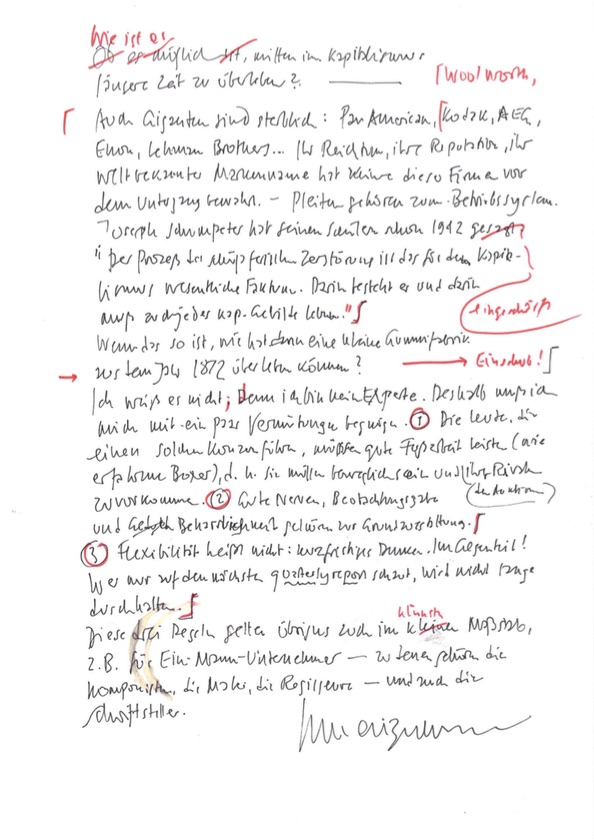 Wie ist es
Ob es möglich ist, mitten im Kapitalismus
längere Zeit zu überleben?
[Woolworth,
Auch Giganten sind sterblich: Pan American, [Kodak, AEG,
Enron, Lehman Brothers... Ihr Reichtum, ihre Reputation, ihr
weltbekannter Markenname hat keine dieser Firmen vor
dem Untergang bewahrt. – Pleiten gehören zum Betriebssystem.
Joseph Schumpeter hat seinen schon 1942 gesagt
"Der Prozess der schöpferischen Zerstörung ist das für den Kapita-
lismus wesentliche Faktum. Darin besteht er und darin
muss auch jedes kap. Gebilde leben."]
eingeschärft
Wenn das so ist, wie hat dann eine kleine Gummifabrik
aus dem Jahr 1872 überleben können?
→ Einschub!
Ich weiß es nicht; Denn ich bin kein Experte. Deshalb muss ich
mich mit ein paar Vermutungen begnügen. ① Die Leute, die
einen solchen Konzern führen, müssen gute Fußarbeit leisten (wie
erfahrene Boxer), d.h. sie müssen beweglich sein und ihren Rivalen
zuvorkommen. ② Gute Nerven, Beobachtungsgabe
(der Konkurrenz)
und Beharrlichkeit gehören zur Grundausstattung.
③ Flexibilität heißt nicht: kurzfristiges Denken. Im Gegenteil!
Wer nur auf den nächsten quarterly report schaut, wird nicht lange
durchhalten.
kleinsten
Diese drei Regeln gelten übrigens auch im kleinen Maßstab,
z.B. für Ein-Mann-Unternehmer — zu denen gehören die
Komponisten, die Maler, die Regisseure — und auch die
Schriftsteller.